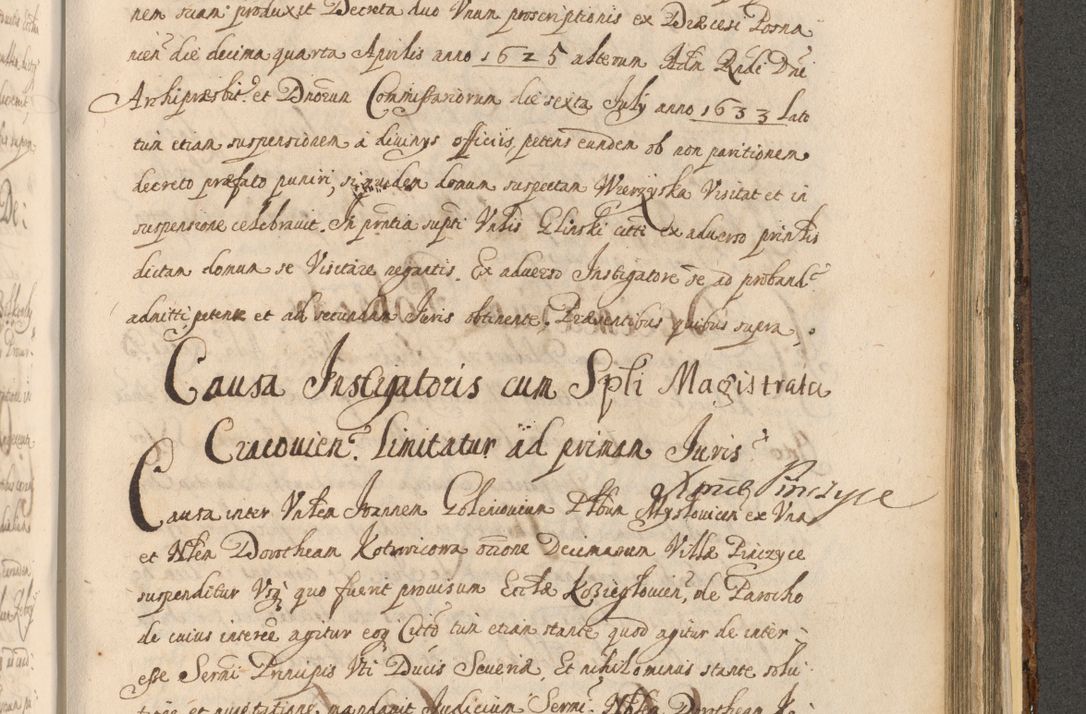 nem suam produxit Decreta duo Vnum proscriptionis ex Diæcesi Posna
nien die decima quarta Aprilis anno 1625 alterum Adm Rndi Dni
Archipræsbit: et Dnorum Commissariorum die sexta July anno 1633 Lato
tum etiam suspensionem a divinys officiis, petens eundem ob non paritionem
decreto præfato puniri, siquidem domum suspectam Wierzyska Visitat et in
suspensione celebravit. In pntia supti Vnlis Glinski citti ex adverso prinlis
dictam domum se Visitare negantis. Ex adverso Instigatore se ad proband
admitti petente et ad secundam Iuris obtinente. Præsentibus quibus supra.
Causa Instigatoris cum Spli Magistratu
Cracovien: Limitatur ad primam Iuris
Pinczyce
Causa inter Vnlem Joannem Goleniovium Plbum Myslovicen ex Vna
et Nlem Dorotheam Kotwicowa occone Decimarum Villæ Pinczyce
suspenditur Vsq quo fuerit provisum Ecclæ Koziegloviens, de Parocho
de cuius interee agitur eoq Citto tum etiam stante quod agitur de inter
esse Sermi Principis Vti Ducis Severiæ, Et nihilominus stante solu
mandavit Judicium Sermi Nlem Dorotheam